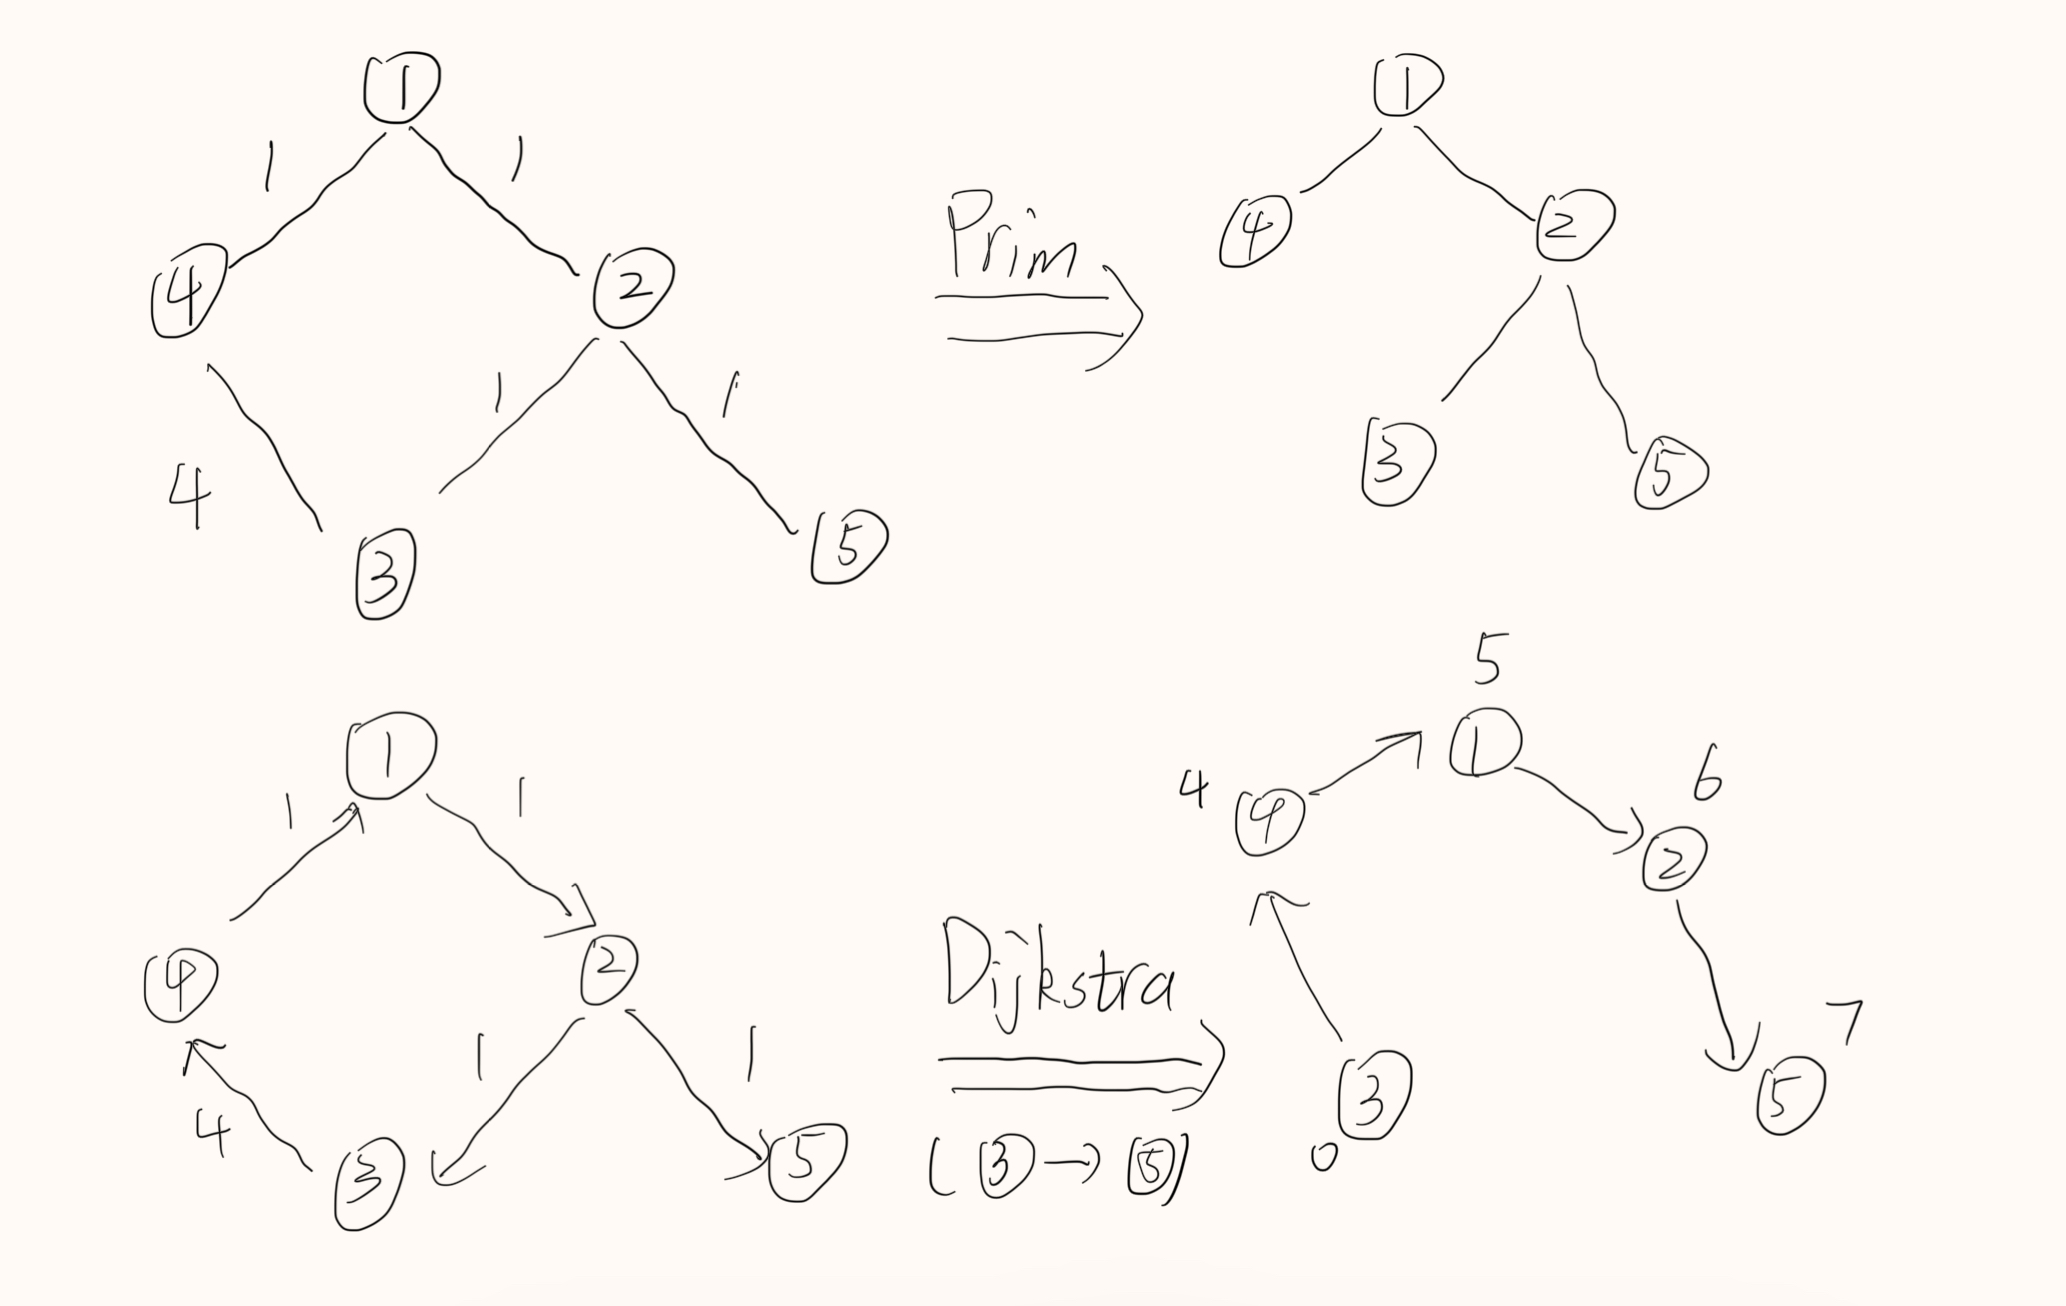 1
1
1
4
2
1
1
4
3
5
Prim
1
4
2
3
5
1
1
1
4
2
1
1
4
3
5
Dijkstra
(3→5)
5
1
4
4
6
2
3
0
7
5